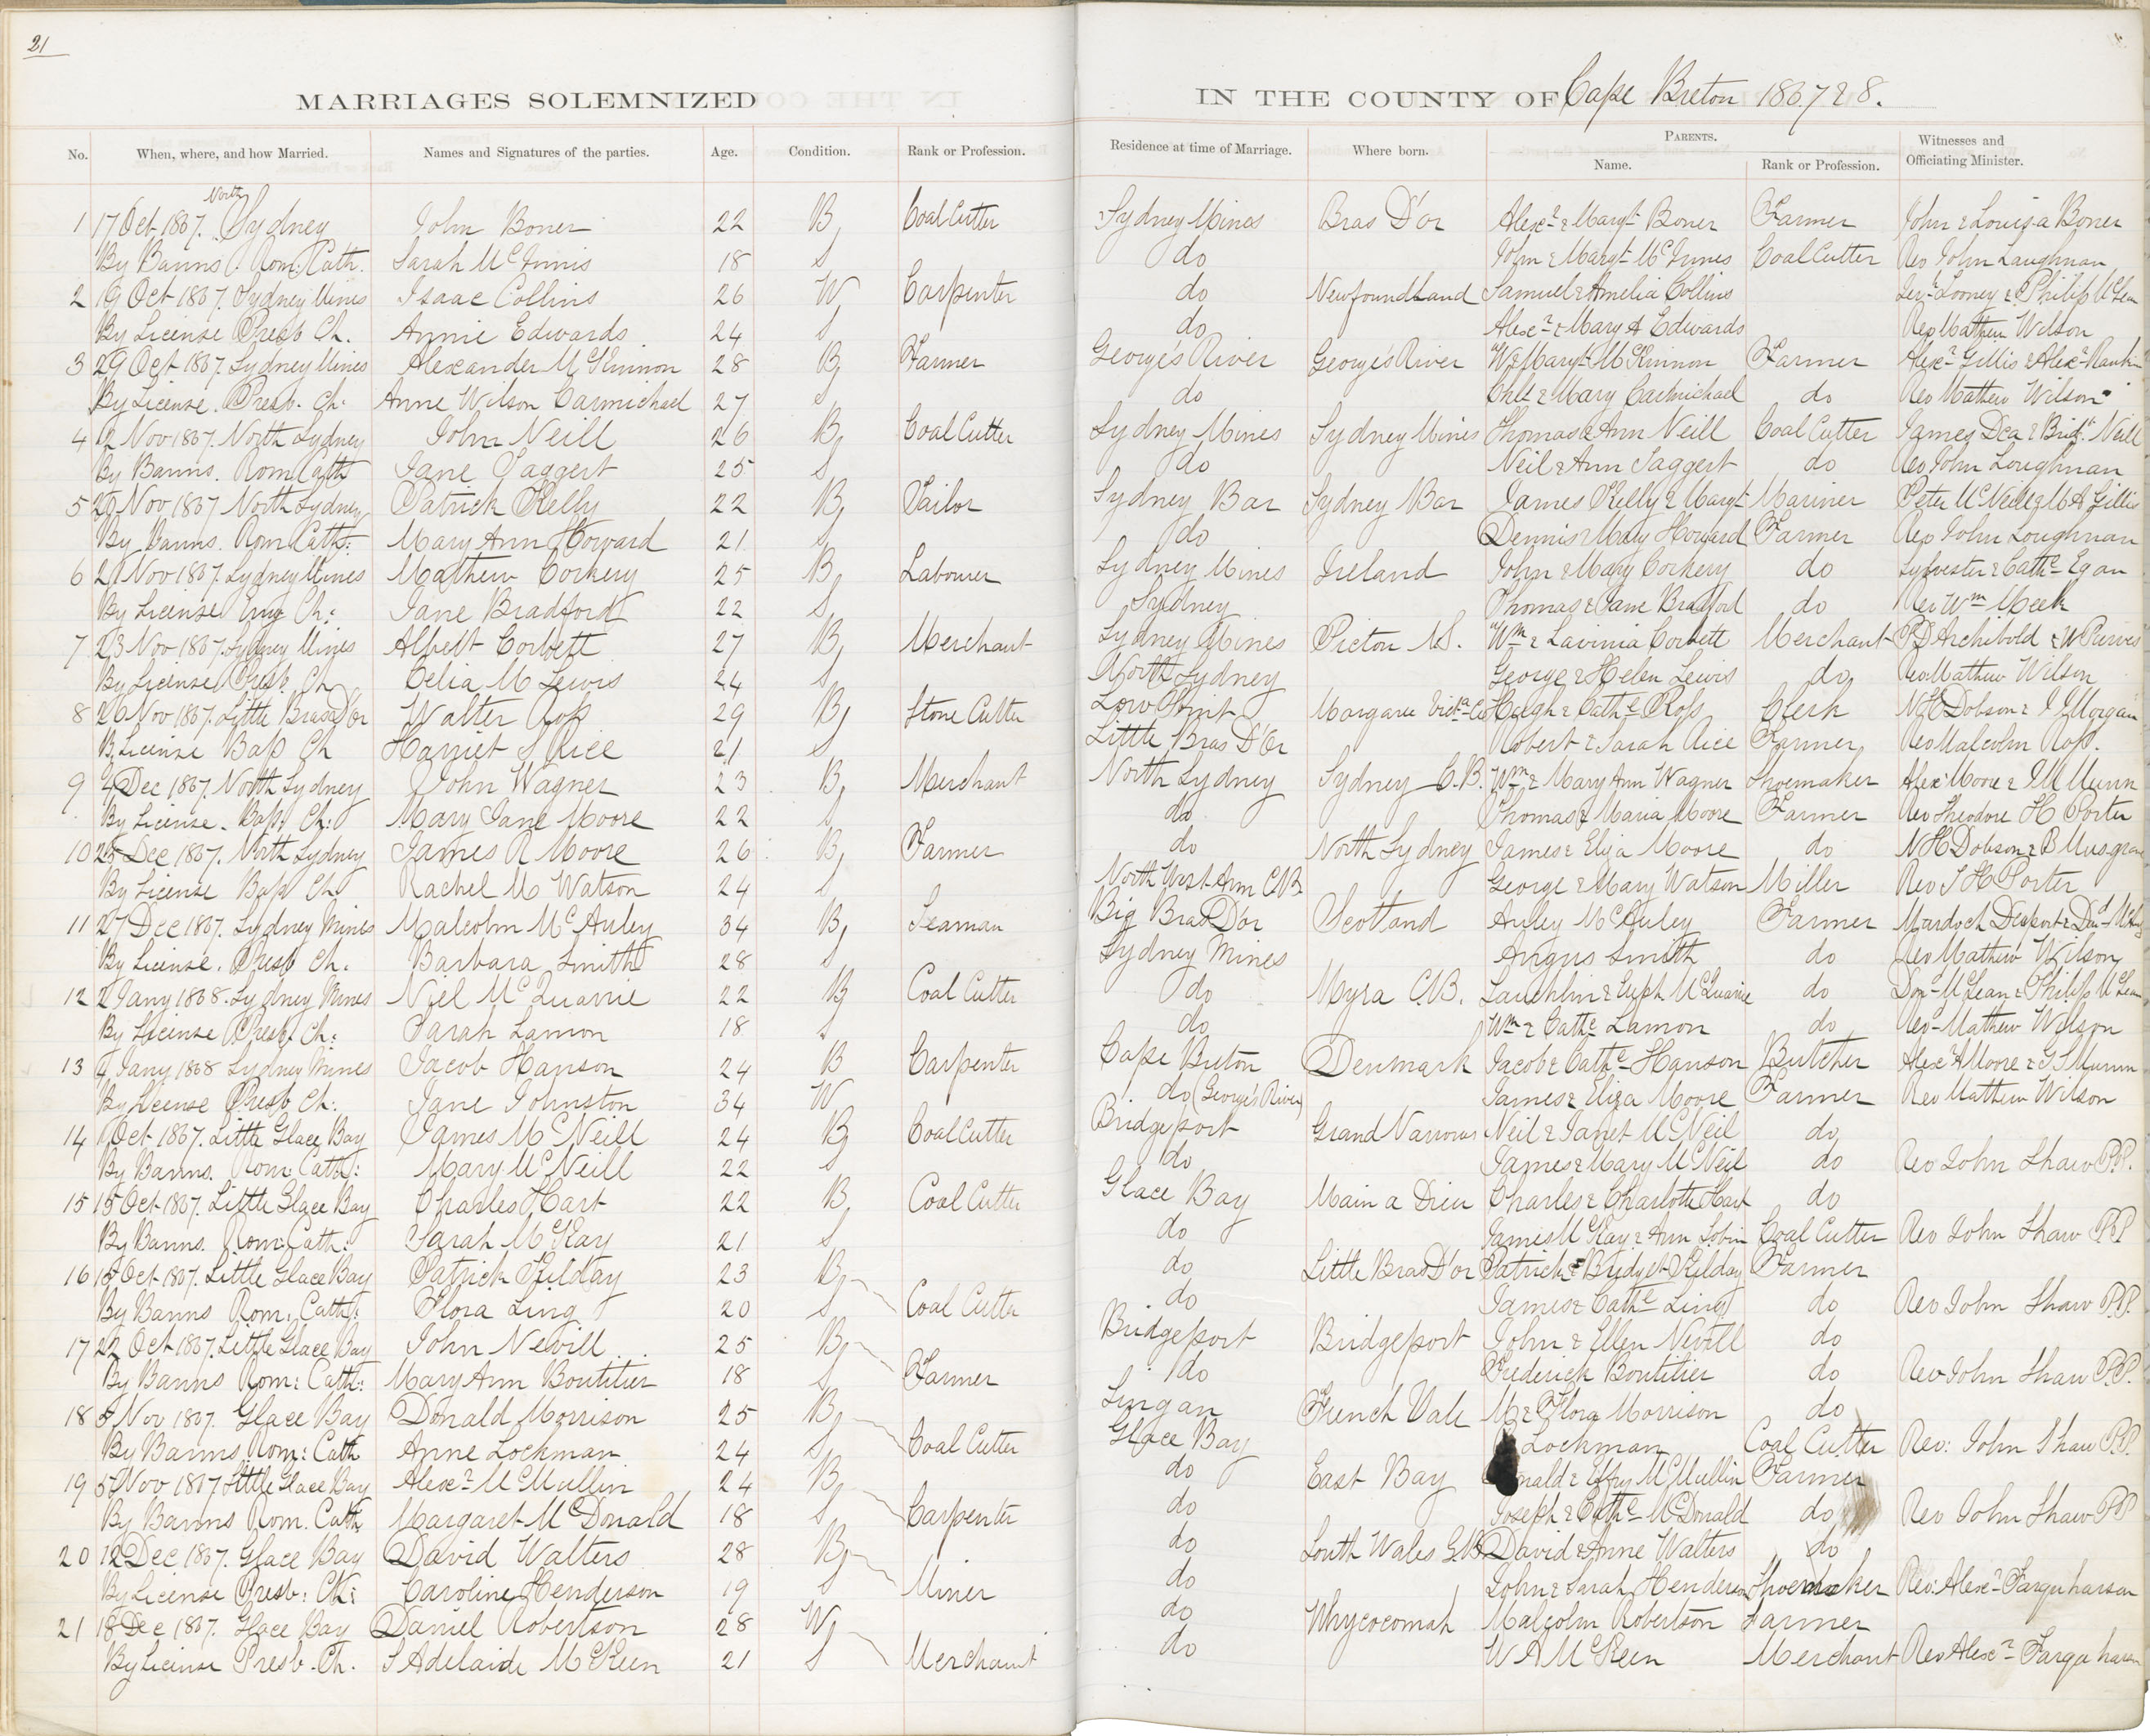 21
MARRIAGES SOLEMNIZED IN THE COUNTY OF Cape Breton 1867 & 8.
No. When, where, and how Married. Names and Signatures of the parties. Age. Condition. Rank or Profession. Residence at time of Marriage. Where born. PARENTS. Name. Rank or Profession. Witnesses and Officiating Minister.
1 17 Oct 1867. North Sydney John Boner 22 B Coal Cutter Sydney Mines Bras D'or Alexr & Margt Boner Farmer John & Louisa Boner
By Banns Rom: Cath. Sarah McInnis 18 S do John & Margt McInnes Coal Cutter Rev John Laughnan
2 19 Oct 1867. Sydney Mines Isaac Collins 26 W Carpenter do Newfoundland Samuel & Amelia Collins Looney & Philip McLean
By License Presb Ch. Annie Edwards 24 S do Alexr & Mary A Edwards Rev Mathew Wilson
3 29 Oct 1867. Sydney Mines Alexander McKinnon 28 B Farmer George's River George's River Wm & Margt McKinnon Farmer Alexr Gillis & Alexr Rankin
By License. Presb. Ch. Anne Wilson Carmichael 27 S do & Mary Carmichael do Rev Mathew Wilson
4 12 Nov 1867. North Sydney John Neill 26 B Coal Cutter Sydney Mines Sydney Mines Thomas & Ann Neill Coal Cutter James Dea & Bridt Neill
By Banns. Rom Cath Jane Taggert 25 S do Neil & Ann Taggert do Rev John Loughnan
5 20 Nov 1867 North Sydney Patrick Kelly 22 B Tailor Sydney Bar Sydney Bar James Kelly & Margt Mariner Peter McNeill & M A Gillis
By Banns. Rom Cath: Mary Ann Howard 21 S do Dennis & Mary Howard Farmer Rev John Loughnan
6 21 Nov 1867. Sydney Mines Mathew Corkery 25 B Labourer Sydney Mines Ireland John & Mary Corkery do Sylvester & Cathe Egan
By License Eng Ch: Jane Bradford 22 S Sydney Thomas & Jane Bradford do Rev Wm Meek
7 23 Nov 1867. Sydney Mines Albert Corbett 27 B Merchant Sydney Mines Pictou N.S. Wm & Lavinia Corbett Merchant Archibold & W Purves
By License Presb. Ch Celia M Lewis 24 S North Sydney George & Helen Lewis do Rev Mathew Wilson
8 26 Nov 1867. Little Bras D'or Walter Ross 29 B Stone Cutter Low Point Margaree Victa Co Hugh & Cathe Ross Clerk N H Dobson & Morgan
B License Bap Ch Harriet S Rice 21 S Little Bras D'Or Robert & Sarah Rice Farmer Rev Malcolm Ross.
9 4 Dec 1867. North Sydney John Wagner 23 B Merchant North Sydney Sydney C.B. Wm & Mary Ann Wagner Shoemaker Alex Moore & Munn
By License. Bap. Ch: Mary Jane Moore 22 S do Thomas & Maria Moore Farmer Rev Theodore H Porter
10 25 Dec 1867. North Sydney James R Moore 26 B Farmer do North Sydney James & Eliza Moore do N H Dobson & B Musgrave
By License Bap Ch Rachel M Watson 24 S North West Arm C.B. George & Mary Watson Miller Rev T H Porter
11 27 Dec 1867. Sydney Mines Malcolm McAuley 34 B Seaman Big Bras D'or Scotland Auley McAuley Farmer Murdoch
By License. Presb Ch. Barbara Smith 28 S Sydney Mines Angus Smith do Rev Mathew Wilson
12 2 Jany 1868. Sydney Mines Niel McQuarrie 22 B Coal Cutter do Myra C.B. Lauchlin & Euph McQuarrie do Don McLean & Philip McLean
By License Presb. Ch: Sarah Lamon 18 S do Wm & Cathe Lamon do Rev Mathew Wilson
13 4 Jany 1868 Sydney Mines Jacob Hanson 24 B Carpenter Cape Breton Denmark Jacob & Cathe Hanson Butcher Alexr Moore & Munn
By License Presb Ch: Jane Johnston 34 W do (George's River) James & Eliza Moore Farmer Rev Mathew Wilson
14 1 Oct 1867. Little Glace Bay James McNeill 24 B Coal Cutter Bridgeport Grand Narrows Neil & Janet McNeil do
By Banns. Rom: Cath: Mary McNeill 22 S do James & Mary McNeil do Rev John Shaw P.P.
15 15 Oct 1867. Little Glace Bay Charles Hart 22 B Coal Cutter Glace Bay Main a Dieu Charles & Charlotte Hart do
By Banns. Rom: Cath: Sarah McKay 21 S do James McKay & Ann Tobin Coal Cutter Rev John Shaw PP
16 15 Oct 1867. Little Glace Bay Patrick Kilday 23 B do Little Bras D'or Patrick & Bridget Kilday Farmer
By Banns Rom: Cath: Flora Ling 20 S Coal Cutter do James & Cathe Ling do Rev John Shaw P.P.
17 22 Oct 1867. Little Glace Bay John Nevill 25 B Bridgeport Bridgeport John & Ellen Nevill do
By Banns Rom: Cath: Mary Ann Boutilier 18 S Farmer do Frederick Boutilier do Rev John Shaw P.P.
18 5 Nov 1867. Glace Bay Donald Morrison 25 B Lingan French Vale M & Flora Morrison do
By Banns. Rom: Cath Anne Lockman 24 S Coal Cutter Glace Bay Lockman Coal Cutter Rev: John Shaw P.P.
19 5 Nov 1867 Little Glace Bay Alexr McMullin 24 B do East Bay & Effry McMullin Farmer
By Banns Rom. Cath Margaret McDonald 18 S Carpenter do Joseph & Cathe McDonald do Rev John Shaw PP
20 12 Dec 1867. Glace Bay David Walters 28 B do South Wales G.B. David & Anne Walters do
By License Presb: Ch: Caroline Henderson 19 S Miner do John & Sarah Henderson Shoemaker Rev: Alexr Farquharson
21 18 Dec 1867. Glace Bay Daniel Robertson 28 W do Whycocomah Malcolm Robertson Farmer
By License Presb. Ch. S Adelaide McKeen 21 S Merchant do W A McKeen Merchant Rev Alexr Farquharson